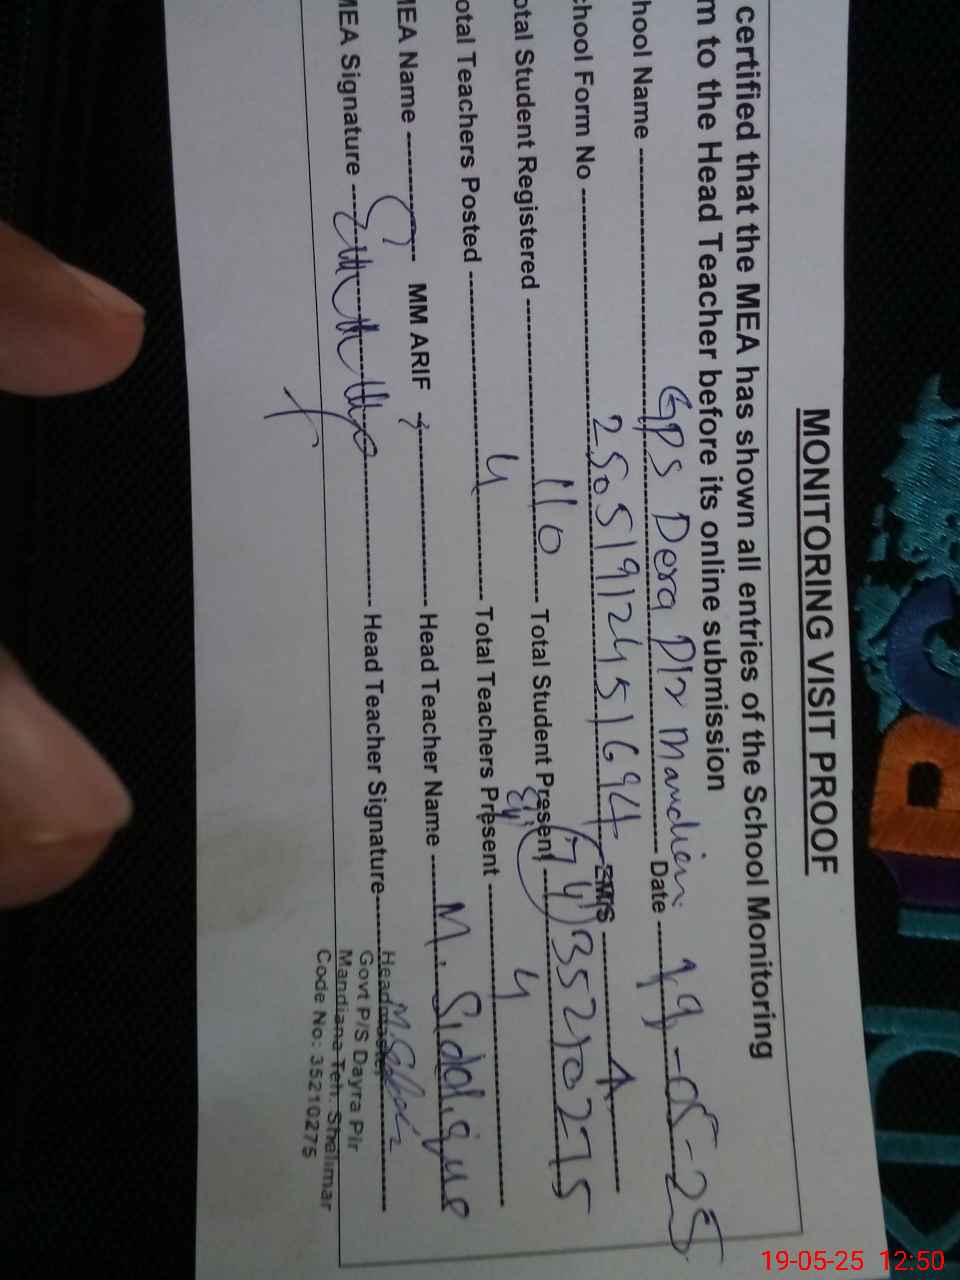 MONITORING VISIT PROOF
certified that the MEA has shown all entries of the School Monitoring
m to the Head Teacher before its online submission
hool Name GPS Dera Pir Mandien Date 19-05-25
chool Form No 25051912451694 EMIS 35210275
otal Student Registered 110 Total Student Present 74
otal Teachers Posted 4 Total Teachers Present 4
MEA Name MM ARIF Head Teacher Name M. Siddique
MEA Signature Head Teacher Signature
Headmaster
Govt P/S Dayra Pir
Mandiana Teh. Shalimar
Code No: 35210275
19-05-25 12:50